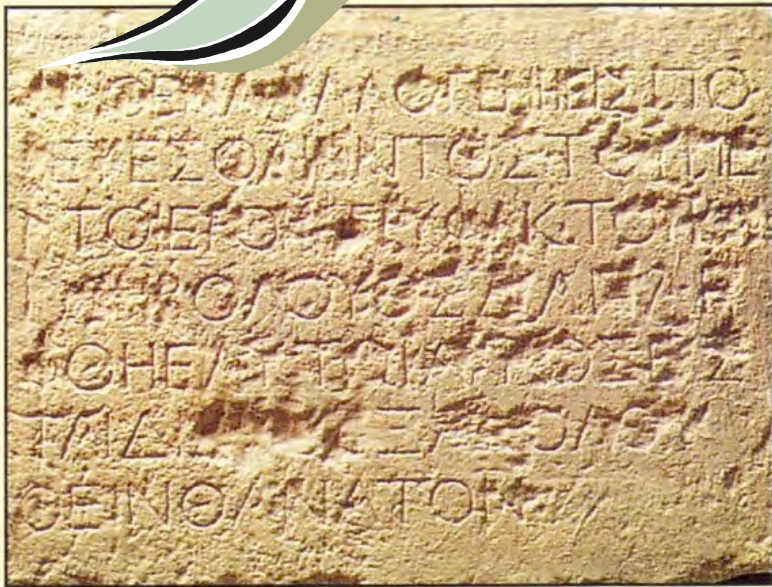 ΘΕΝΑΑΛΛΟΓΕΝΗΕΙΣΠΟ
ΕΥΕΣΘΑΙΕΝΤΟΣΤΟΥΠΕ
ΙΤΟΙΕΡΟΝΤΡΥΦΑΚΤΟΥΚΑΙ
ΠΕΡΙΒΟΛΟΥΟΣΔΑΝΛΗ
ΘΗΕΑΥΤΩΙΑΙΤΙΟΣΕΣ
ΤΑΙΔΙΑΤΟΕΞΑΚΟΛΟΥ
ΘΕΙΝΘΑΝΑΤΟΝ